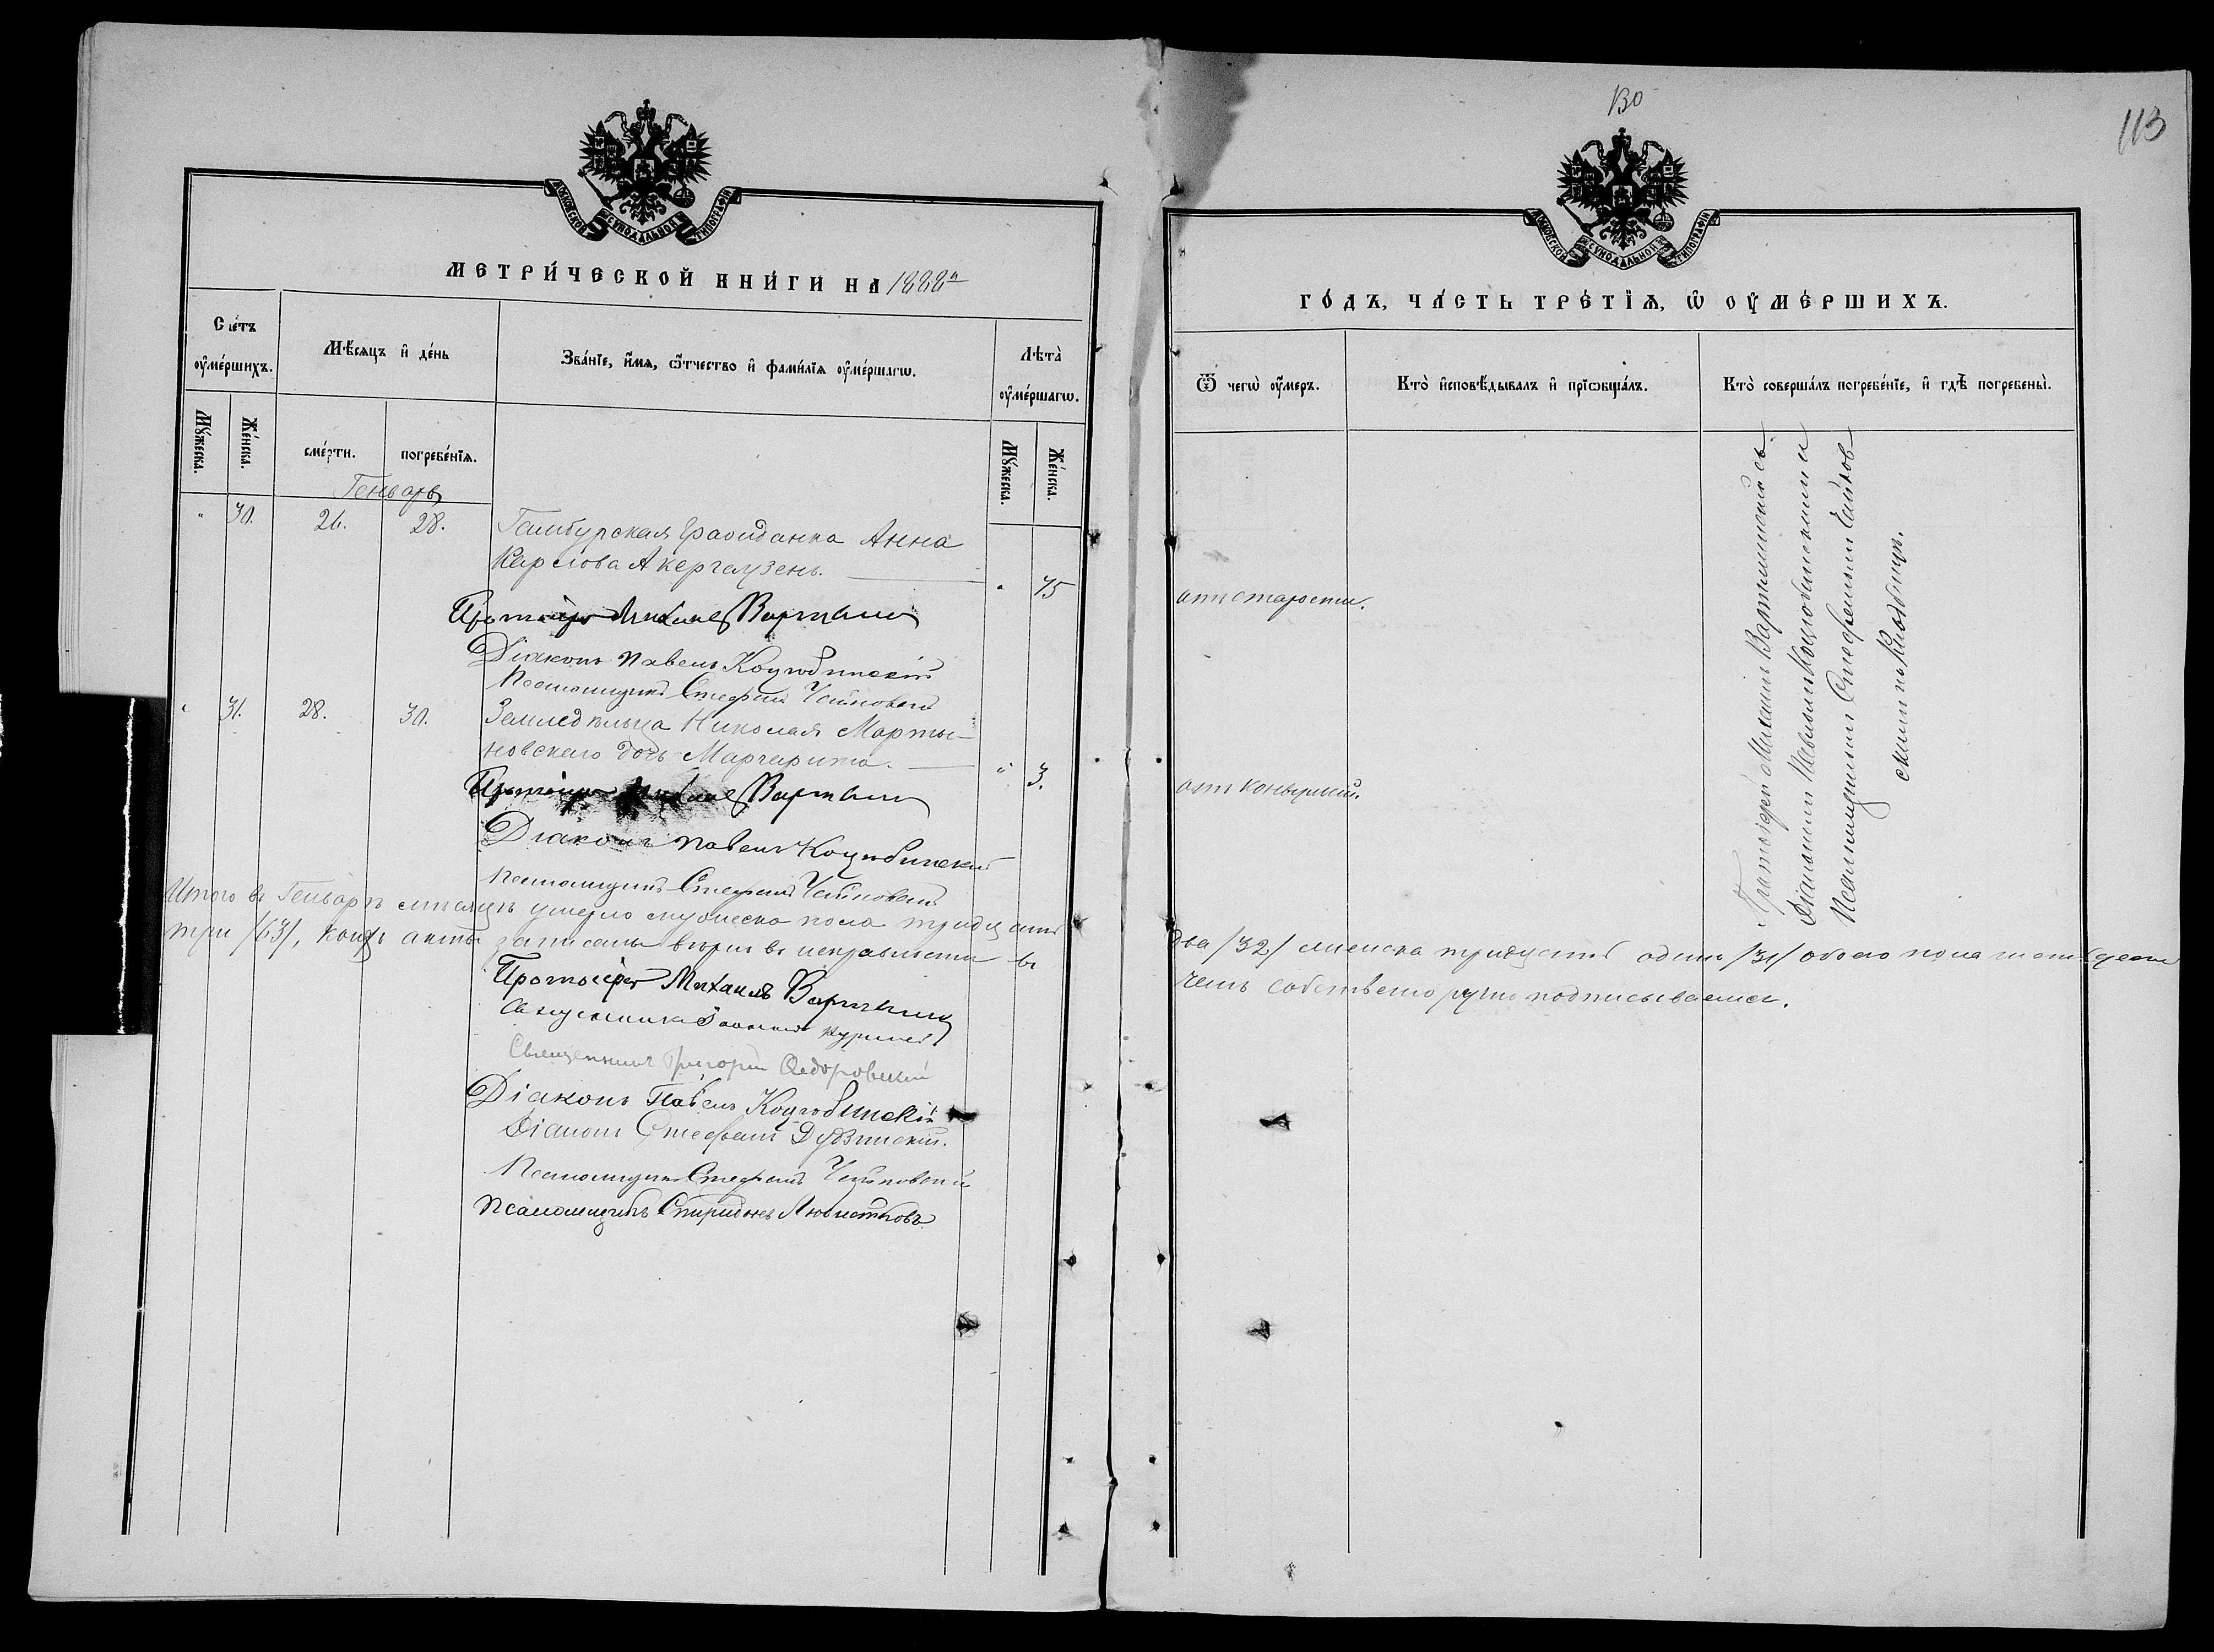 130
113
МОСКОВСКОЙ СѴНОДАЛЬНОЙ ТИПОГРАФІИ
МЕТРИ́ЧЕСКОЙ КНИ́ГИ НА 1888й
Сче́тъ ᲂу҆ме́ршихъ.
Мѣ́сяцъ и҆ де́нь
Зва́нїе, и҆́мя, ѻ҆́тчество и҆ фами́лїя ᲂу҆ме́ршагѡ.
Лѣта̀ ᲂу҆ме́ршагѡ.
Мꙋ́жеска.
Же́нска.
сме́рти.
погребе́нїя.
Мꙋ́жеска.
Же́нска.
Генварь
" 30. 26. 28. Гамбурская гражданка Анна
Карлова Акергаузенъ. " 75
Протоіерей Михаилъ Вартминскій
Діаконъ Павелъ Коцюбинскій
Псаломщикъ Стефанъ Чайковскій
" 31. 28. 30. Земледѣльца Николая Марты-
новскаго дочь Маргарита. " 3.
Протоіерей Михаилъ Вартминскій
Діаконъ Павелъ Коцюбинскій
Псаломщикъ Стефанъ Чайковскій
Итого въ Генварѣ мѣсяцѣ умерло мужеска пола тридцать
три /63/, коихъ акты записаны вѣрно въ исправности въ
Протоіерей Михаилъ Вартминскій
Священникъ
Священникъ Григорій Федоровскій
Діаконъ Павелъ Коцюбинскій
Діаконъ Стефанъ
Псаломщикъ Стефанъ Чайковскій
Псаломщикъ Спиридонъ
МОСКОВСКОЙ СѴНОДАЛЬНОЙ ТИПОГРАФІИ
ГО́ДЪ, ЧА́СТЬ ТРЕ́ТЇѦ, Ѡ҆ ОУ҆МЕ́РШИХЪ.
Ѿ чегѡ̀ ᲂу҆́меръ.
Кто̀ и҆сповѣ́дывалъ и҆ прїѡбща́лъ.
Кто̀ соверша́лъ погребе́нїе, и҆ гдѣ̀ погребены̀.
отъ старости.
отъ конвульсій.
Протоіерей Михаилъ Вартминскій съ
Діакономъ Павломъ Коцюбинскимъ и
Псаломщикомъ Стефаномъ Чайков
скимъ на кладбищѣ.
два /32/ женска тридцать одинъ /31/ обоего пола шестьдесят
чемъ собственноручно подписываемся.